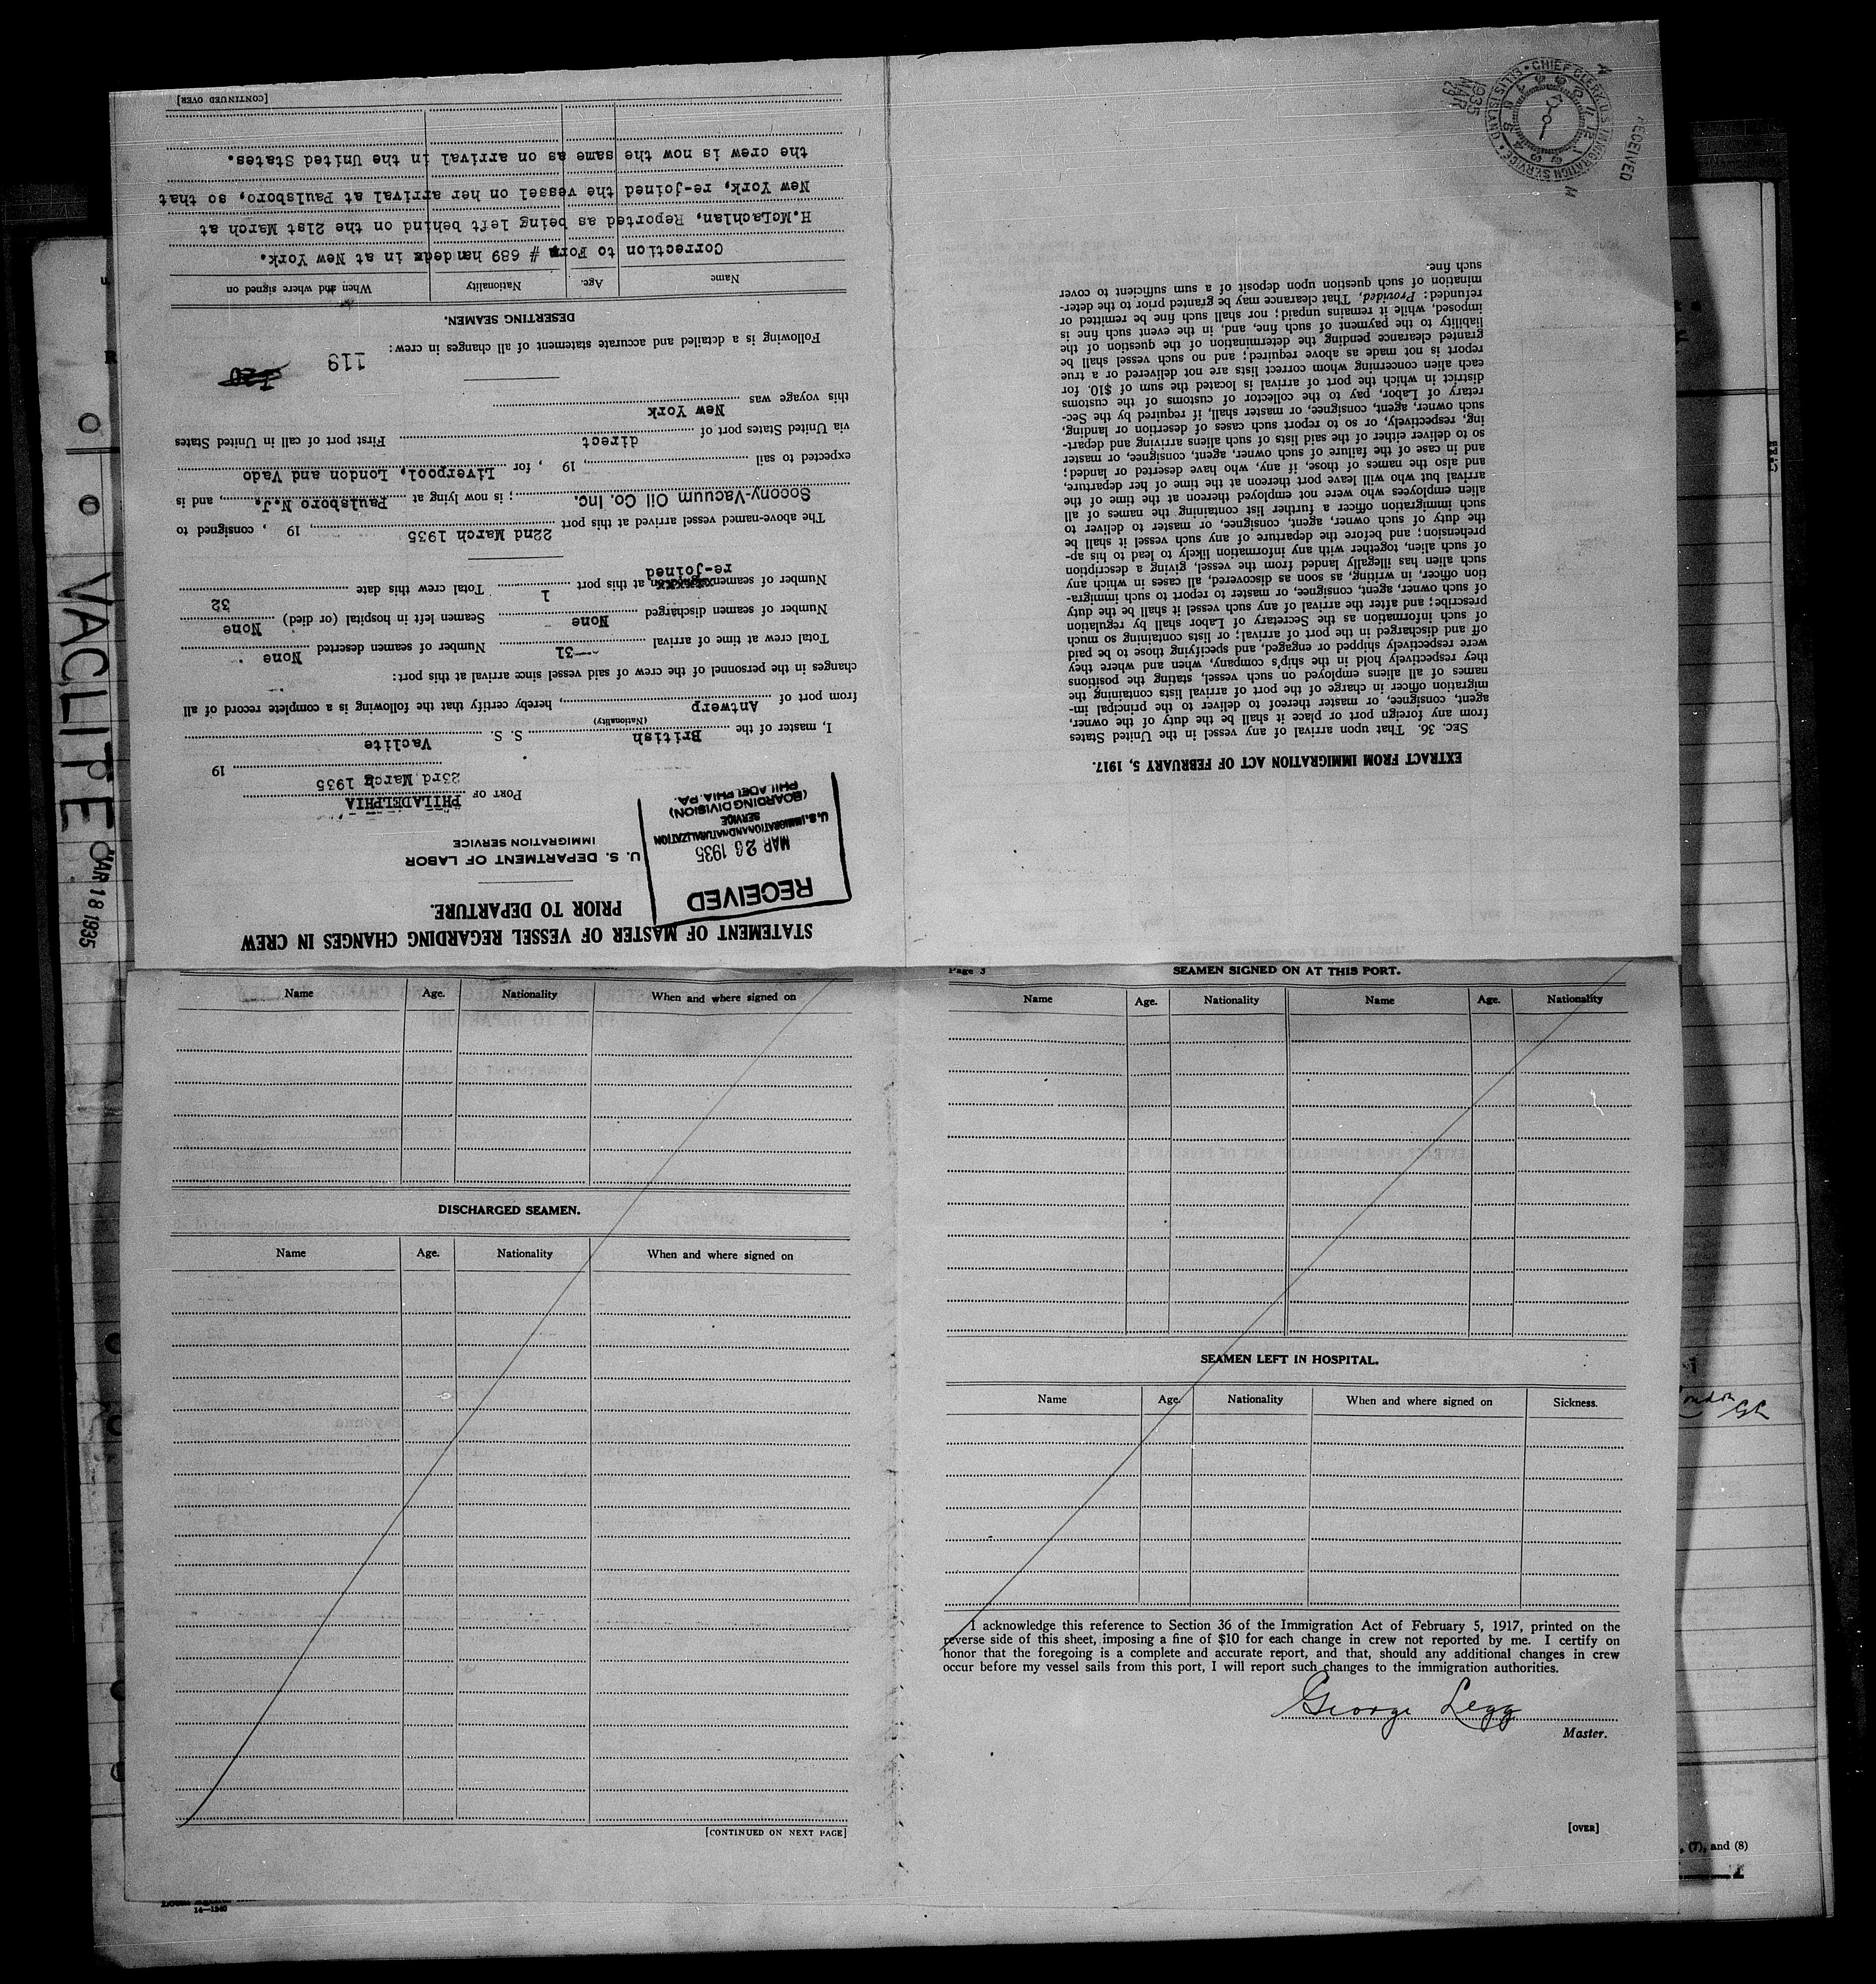 STATEMENT OF MASTER OF VESSEL REGARDING CHANGES IN CREW
PRIOR TO DEPARTURE.
RECEIVED
MAR 26 1935
U.S. IMMIGRATION AND NATURALIZATION
SERVICE
(BOARDING DIVISION)
PHILADELPHIA. PA.
U. S. DEPARTMENT OF LABOR
IMMIGRATION SERVICE
PORT OF PHILADELPHIA
23rd March 1935
19
I, master of the British S. S. Vaclite
(Nationality)
from port of Antwerp, hereby certify that the following is a complete record of all
changes in the personnel of the crew of said vessel since arrival at this port:
Total crew at time of arrival 31 Number of seamen deserted None
Number of seamen discharged None Seamen left in hospital (or died) None
Number of seamen re-joined at this port 1 Total crew this date 32
The above-named vessel arrived at this port 22nd March 1935, 19 , consigned to
Socony-Vacuum Oil Co. Inc. ; is now lying at Paulsboro N.J., and is
expected to sail , 19 , for Liverpool, London and Vado
via United States port of direct First port of call in United States
this voyage was New York
120
119
Following is a detailed and accurate statement of all changes in crew:
DESERTING SEAMEN.
Name Age. Nationality When and where signed on
Correction to Form # 689 handed in at New York.
H.McLachlan, Reported as being left behind on the 21st March at
New York, re-joined the vessel on her arrival at Paulsboro, so that
the crew is now the same as on arrival in the United States.
[CONTINUED OVER]
EXTRACT FROM IMMIGRATION ACT OF FEBRUARY 5, 1917.
SEC. 36. That upon arrival of any vessel in the United States
from any foreign port or place it shall be the duty of the owner,
agent, consignee, or master thereof to deliver to the principal im-
migration officer in charge of the port of arrival lists containing the
names of all aliens employed on such vessel, stating the positions
they respectively hold in the ship's company, when and where they
were respectively shipped or engaged, and specifying those to be paid
off and discharged in the port of arrival; or lists containing so much
of such information as the Secretary of Labor shall by regulation
prescribe; and after the arrival of any such vessel it shall be the duty
of such owner, agent, consignee, or master to report to such immigra-
tion officer, in writing, as soon as discovered, all cases in which any
such alien has illegally landed from the vessel, giving a description
of such alien, together with any information likely to lead to his ap-
prehension; and before the departure of any such vessel it shall be
the duty of such owner, agent, consignee, or master to deliver to
such immigration officer a further list containing the names of all
alien employees who were not employed thereon at the time of the
arrival but who will leave port thereon at the time of her departure,
and also the names of those, if any, who have deserted or landed;
and in case of the failure of such owner, agent, consignee, or master
so to deliver either of the said lists of such aliens arriving and depart-
ing, respectively, or so to report such cases of desertion or landing,
such owner, agent, consignee, or master shall, if required by the Sec-
retary of Labor, pay to the collector of customs of the customs
district in which the port of arrival is located the sum of $10. for
each alien concerning whom correct lists are not delivered or a true
report is not made as above required; and no such vessel shall be
granted clearance pending the determination of the question of the
liability to the payment of such fine, and, in the event such fine is
imposed, while it remains unpaid; nor shall such fine be remitted or
refunded: Provided, That clearance may be granted prior to the deter-
mination of such question upon deposit of a sum sufficient to cover
such fine.
RECEIVED
CHIEF CLERK U.S. IMMIGRATION SERVICE ELLIS ISLAND
A M
1935 MAR 29
VACLITE
MAR 18 1935
Name Age. Nationality When and where signed on
DISCHARGED SEAMEN.
Name Age. Nationality When and where signed on
[CONTINUED ON NEXT PAGE]
Page 3
SEAMEN SIGNED ON AT THIS PORT.
Name Age. Nationality Name Age. Nationality
SEAMEN LEFT IN HOSPITAL.
Name Age. Nationality When and where signed on Sickness.
I acknowledge this reference to Section 36 of the Immigration Act of February 5, 1917, printed on the
reverse side of this sheet, imposing a fine of $10 for each change in crew not reported by me. I certify on
honor that the foregoing is a complete and accurate report, and that, should any additional changes in crew
occur before my vessel sails from this port, I will report such changes to the immigration authorities.
George Legg
Master.
[OVER]
London
, (7), and (8)
14—1240